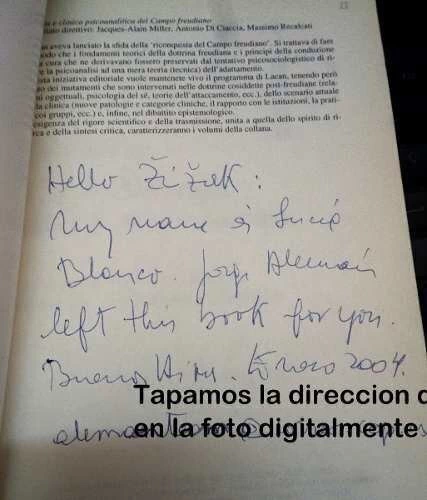 a e clinica psicoanalitica del Campo freudiano
tato direttivo: Jacques-Alain Miller, Antonio Di Ciaccia, Massimo Recalcati
an aveva lanciato la sfida della "riconquista del Campo freudiano". Si trattava di fare
odo che i fondamenti teorici della dottrina freudiana e i principi della conduzione
a cura che ne derivavano fossero preservati dal tentativo psicosociologistico di ri-
e la psicoanalisi ad una mera teoria (tecnica) dell'adattamento.
sta iniziativa editoriale vuole mantenere vivo il programma di Lacan, tenendo però
o dei mutamenti che sono intervenuti nelle dottrine cosiddette post-freudiane (rela-
oggettuali, psicologia del sé, teorie dell'attaccamento, ecc.), dello scenario attuale
la clinica (nuove patologie e categorie cliniche, il rapporto con le istituzioni, la prati-
coi gruppi, ecc.) e, infine, nel dibattito epistemologico.
esigenza del rigore scientifico e della trasmissione, unita a quella dello spirito di ri-
a e della sintesi critica, caratterizzeranno i volumi della collana.
Hello Žižek:
My name is Lucía
Blanco. Jorge Alemán
left this book for you.
Buenos Aires. Enero 2004.
Tapamos la direccion d
en la foto digitalmente